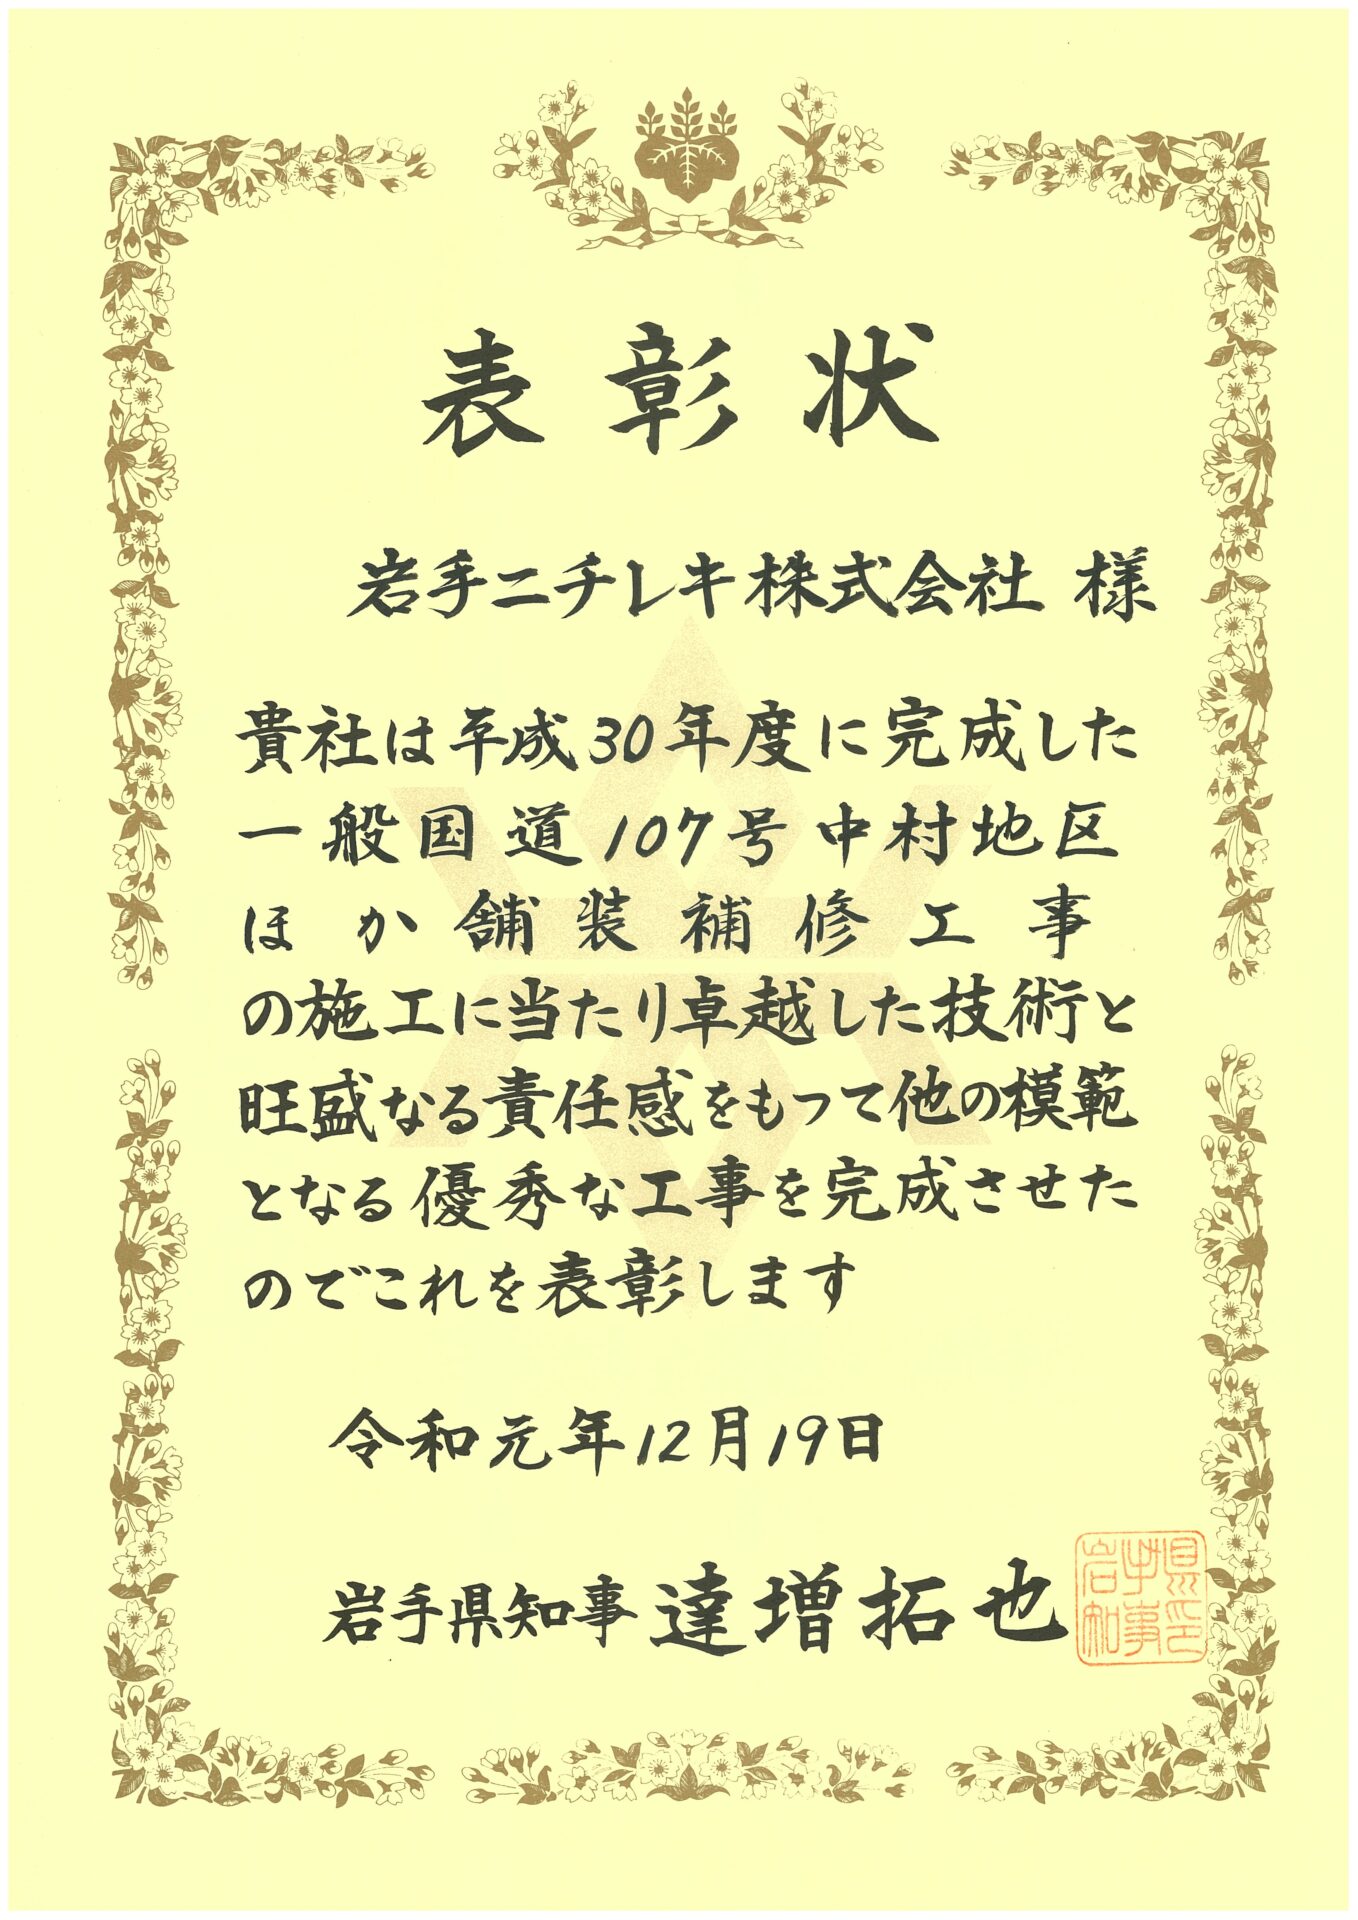 表彰状
岩手ニチレキ株式会社 様
貴社は平成30年度に完成した
一般国道107号中村地区
ほか舗装補修工事
の施工に当たり卓越した技術と
旺盛なる責任感をもって他の模範
となる優秀な工事を完成させた
のでこれを表彰します
令和元年12月19日
岩手県知事 達増拓也
岩手県知事印